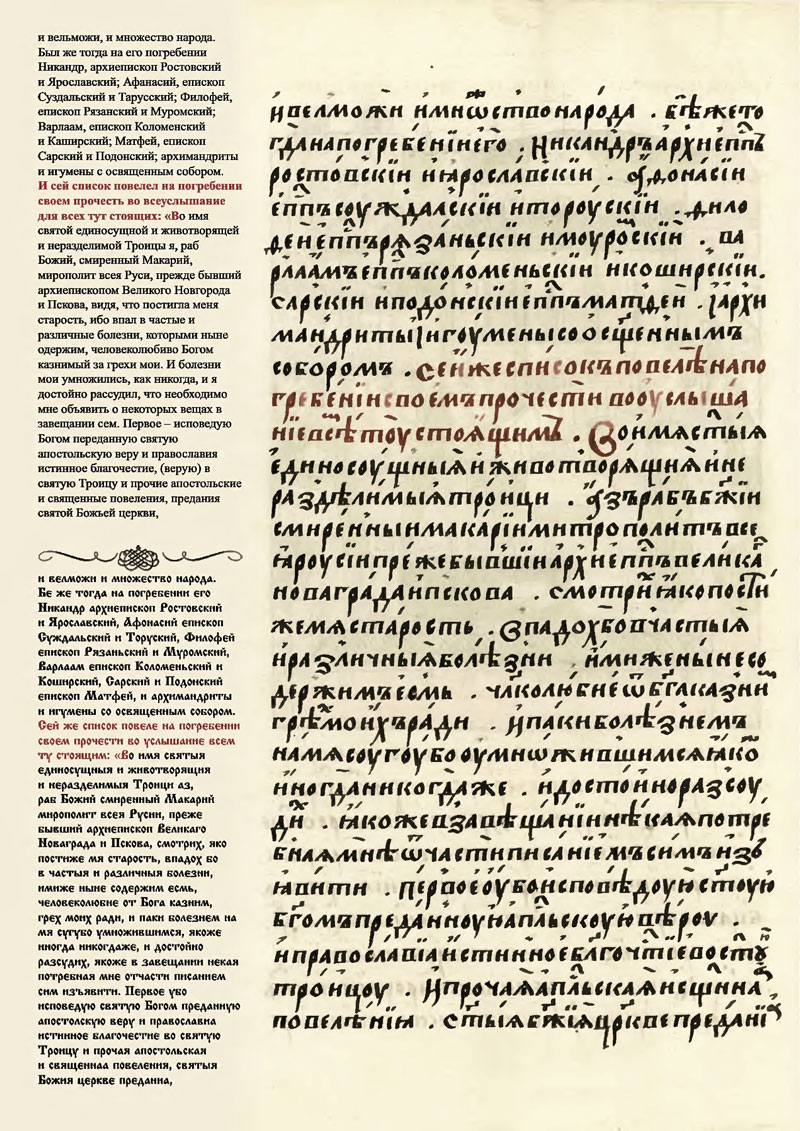 и вельможи, и множество народа.
Был же тогда на его погребении
Никандр, архиепископ Ростовский
и Ярославский; Афанасий, епископ
Суздальский и Тарусский; Филофей,
епископ Рязанский и Муромский;
Варлаам, епископ Коломенский
и Каширский; Матфей, епископ
Сарский и Подонский; архимандриты
и игумены с освященным собором.
И сей список повелел на погребении
своем прочесть во всеуслышание
для всех тут стоящих: «Во имя
святой единосущной и животворящей
и неразделимой Троицы я, раб
Божий, смиренный Макарий,
мирополит всея Руси, прежде бывший
архиепископом Великого Новгорода
и Пскова, видя, что постигла меня
старость, ибо впал в частые и
различные болезни, которыми ныне
одержим, человеколюбиво Богом
казнимый за грехи мои. И болезни
мои умножились, как никогда, и я
достойно рассудил, что необходимо
мне объявить о некоторых вещах в
завещании сем. Первое – исповедую
Богом переданную святую
апостольскую веру и православия
истинное благочестие, (верую) в
святую Троицу и прочие апостольские
и священные повеления, предания
святой Божьей церкви,
и велможи и множество народа.
Бе же тогда на погребении его
Никандр архиепископ Ростовский
и Ярославский, Афонасий епископ
Суждальский и Торуский, Филофей
епископ Рязаньский и Муромский,
Варлаам епископ Коломеньский и
Коширский, Сарский и Подонский
епископ Матфей, и архимандриты
и игумены со освященным собором.
Сей же список повеле на погребении
своем прочести во услышание всем
ту стоящим: «Во имя святыя
единосущныя и животворящия
и неразделимыя Троици аз,
раб Божий смиренный Макарий
мирополит всея Русии, преже
бывший архиепископ Великаго
Новаграда и Пскова, смотрих, яко
постиже мя старость, впадох бо
в частыя и различныя болезни,
имиже ныне содержим есмь,
человеколюбне от Бога казним,
грех моих ради, и паки болезнем на
мя сугубо умножившимся, якоже
иногда никогдаже, и достойно
разсудих, якоже в завещании некая
потребная мне отчасти писанием
сим изъявити. Первое убо
исповедую святую Богом преданную
апостолскую веру и православиа
истинное благочестие во святую
Троицу и прочая апостольская
и священнаа повеления, святыя
Божия церкве преданиа,
и велможи имнѡство народа . бѣже то
гда на погребенїи его . Никандръ архиеппъ
ростовскїи и ꙗрославскїи . Аѳонасїи
еппъ соуждалскїи и тороускїи . Фило
ѳеи еппъ рѧзаньскїи и моуроскїи . ва
рлаамъ еппъ коломеньскїи и коширскїи.
сарскїи и подонскїи еппъ матѳеи . їархи
мандриты ї игоумены со осщенным
соборомъ . сеи же списокъ повелѣ на по
гребенїи своемъ прочести во оуслыша
нїе всѣ тоу стоѧщимъ . Во имѧ стыѧ
единосоущныѧ и животворѧщиѧ и не
раздѣлимыѧ троици . Азъ рабъ бжїи
смиренныи макарїи митрополитъ все
ꙗ роусїи преже бывшїи архиеппъ велика
новаграда и пскова . смотри ꙗко пости
же мѧ старость . впадох бо в частыѧ
и различныѧ болѣзни . имиже ныне со
держимъ есмь . члколюбне ѿ бга казни
грѣ моихъ ради . и паки болѣзнемъ
на мѧ соугоубо оумнѡжившимсѧ ꙗко
иногда никогда же . и достоино разсоу
ди . ꙗкоже в завѣщанїи нѣкаꙗ потре
бнаꙗ мнѣ ѿчасти писанїемъ симъ изъ
ꙗвити . первое оубо исповѣдоую стоую
бгомъ преданноую апльскоую вѣроу .
и православїа истинное блгочтїе во сту
троицоу . и прочаꙗ апльскаꙗ и сщнна
повелѣнїꙗ . стыѧ бжїѧ цркве преданї